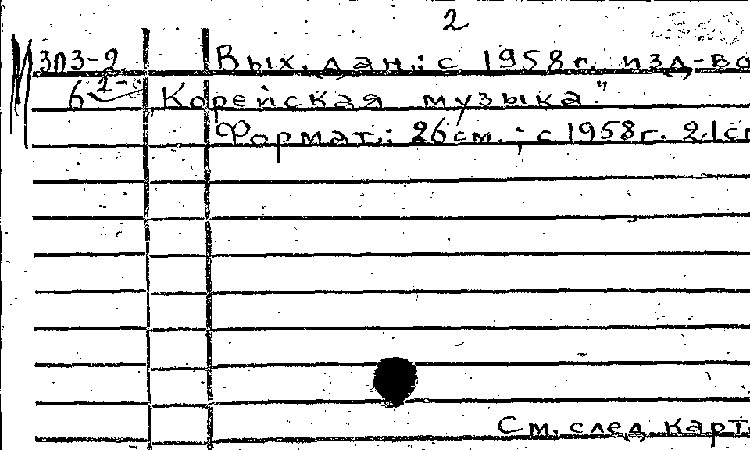 2
3П3-2 Вых. дан.: с 1958г. изд-во
6 Корейская музыка"
Формат.: 26см.; с 1958г. 21см
См. след. карт.